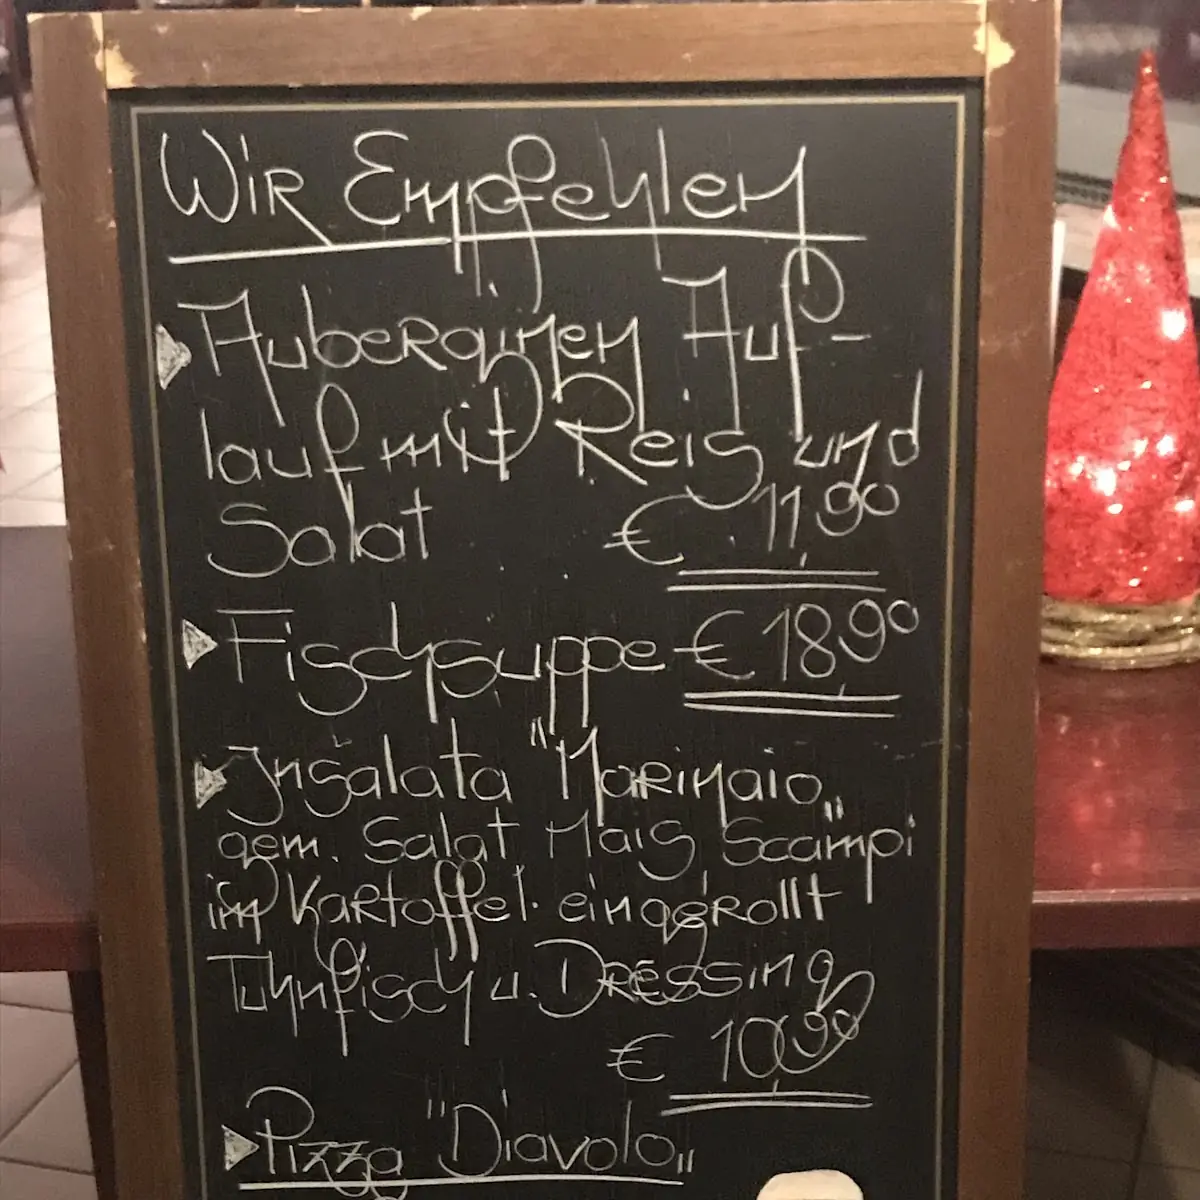 Wir Empfehlen
Auberginen Auf-
lauf mit Reis und
Salat € 11,90
Fischsuppe € 18,90
Insalata "Marinaio„
gem. Salat Mais Scampi
im Kartoffel. eingerollt
Tuhnfisch u. Dressing
€ 10,90
Pizza "Diavolo„